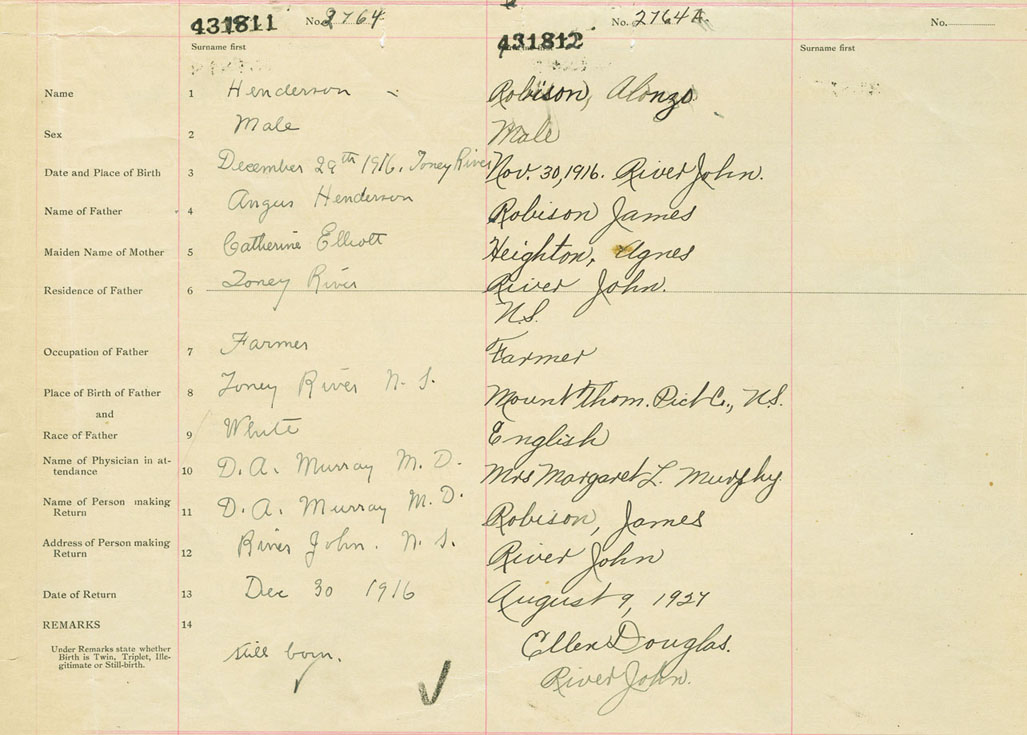 431811 No. 2764 431812 No. 2764A No.
Surname first Surname first
Name 1 Henderson - Robison, Alonzo
Sex 2 Male Male
Date and Place of Birth 3 December 29th 1916. Toney River Nov. 30, 1916. River John.
Name of Father 4 Angus Henderson Robison James
Maiden Name of Mother 5 Catherine Elliott Heighton, Agnes
Residence of Father 6 Toney River River John.
N.S.
Occupation of Father 7 Farmer Farmer
Place of Birth of Father 8 Toney River N. S. Mount Thom. Pict Co., N.S.
and
Race of Father 9 White English
Name of Physician in at-
tendance 10 D. A. Murray M. D. Mrs Margaret L. Murphy
Name of Person making
Return 11 D. A. Murray M. D. Robison, James
Address of Person making
Return 12 River John. N. S. River John
Date of Return 13 Dec 30 1916 August 9, 1927
REMARKS 14
Under Remarks state whether
Birth is Twin, Triplet, Ille-
gitimate or Still-birth.
still born. Ellen Douglas.
River John.